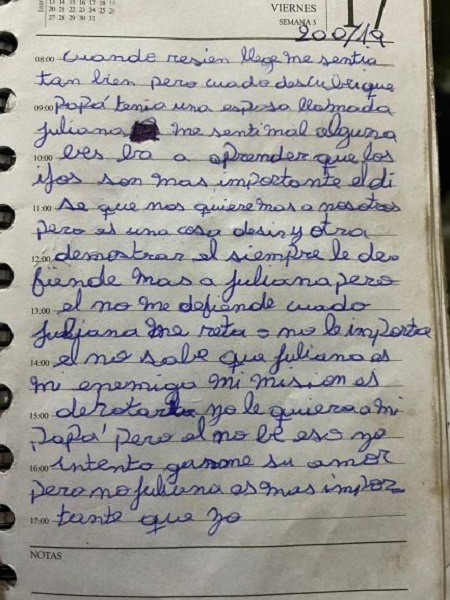 13 14 15 16 17 18 19
20 21 22 23 24 25 26
27 28 29 30 31
VIERNES
SEMANA 3
17
200/19
08:00 cuando resien llege me sentia
tan bien pero cuado descubrique
09:00 papá tenia una esposa llamada
juliana me senti mal alguna
10:00 bes ba a aprender que los
ijos son mas importante el di
11:00 se que nos quiere mas a nosotros
pero es una cosa desir y otra
12:00 demostrar el siempre le de
fiende mas a juliana pero
13:00 el no me defiende cuado
juliana me reta o no le importa
14:00 el no sabe que juliana es
mi enemiga mi mision es
15:00 derotarla yo le quiero a mi
papá pero el no bé eso yo
16:00 intento garme su amor
pero no juliana es mas impor
17:00 tante que yo
NOTAS